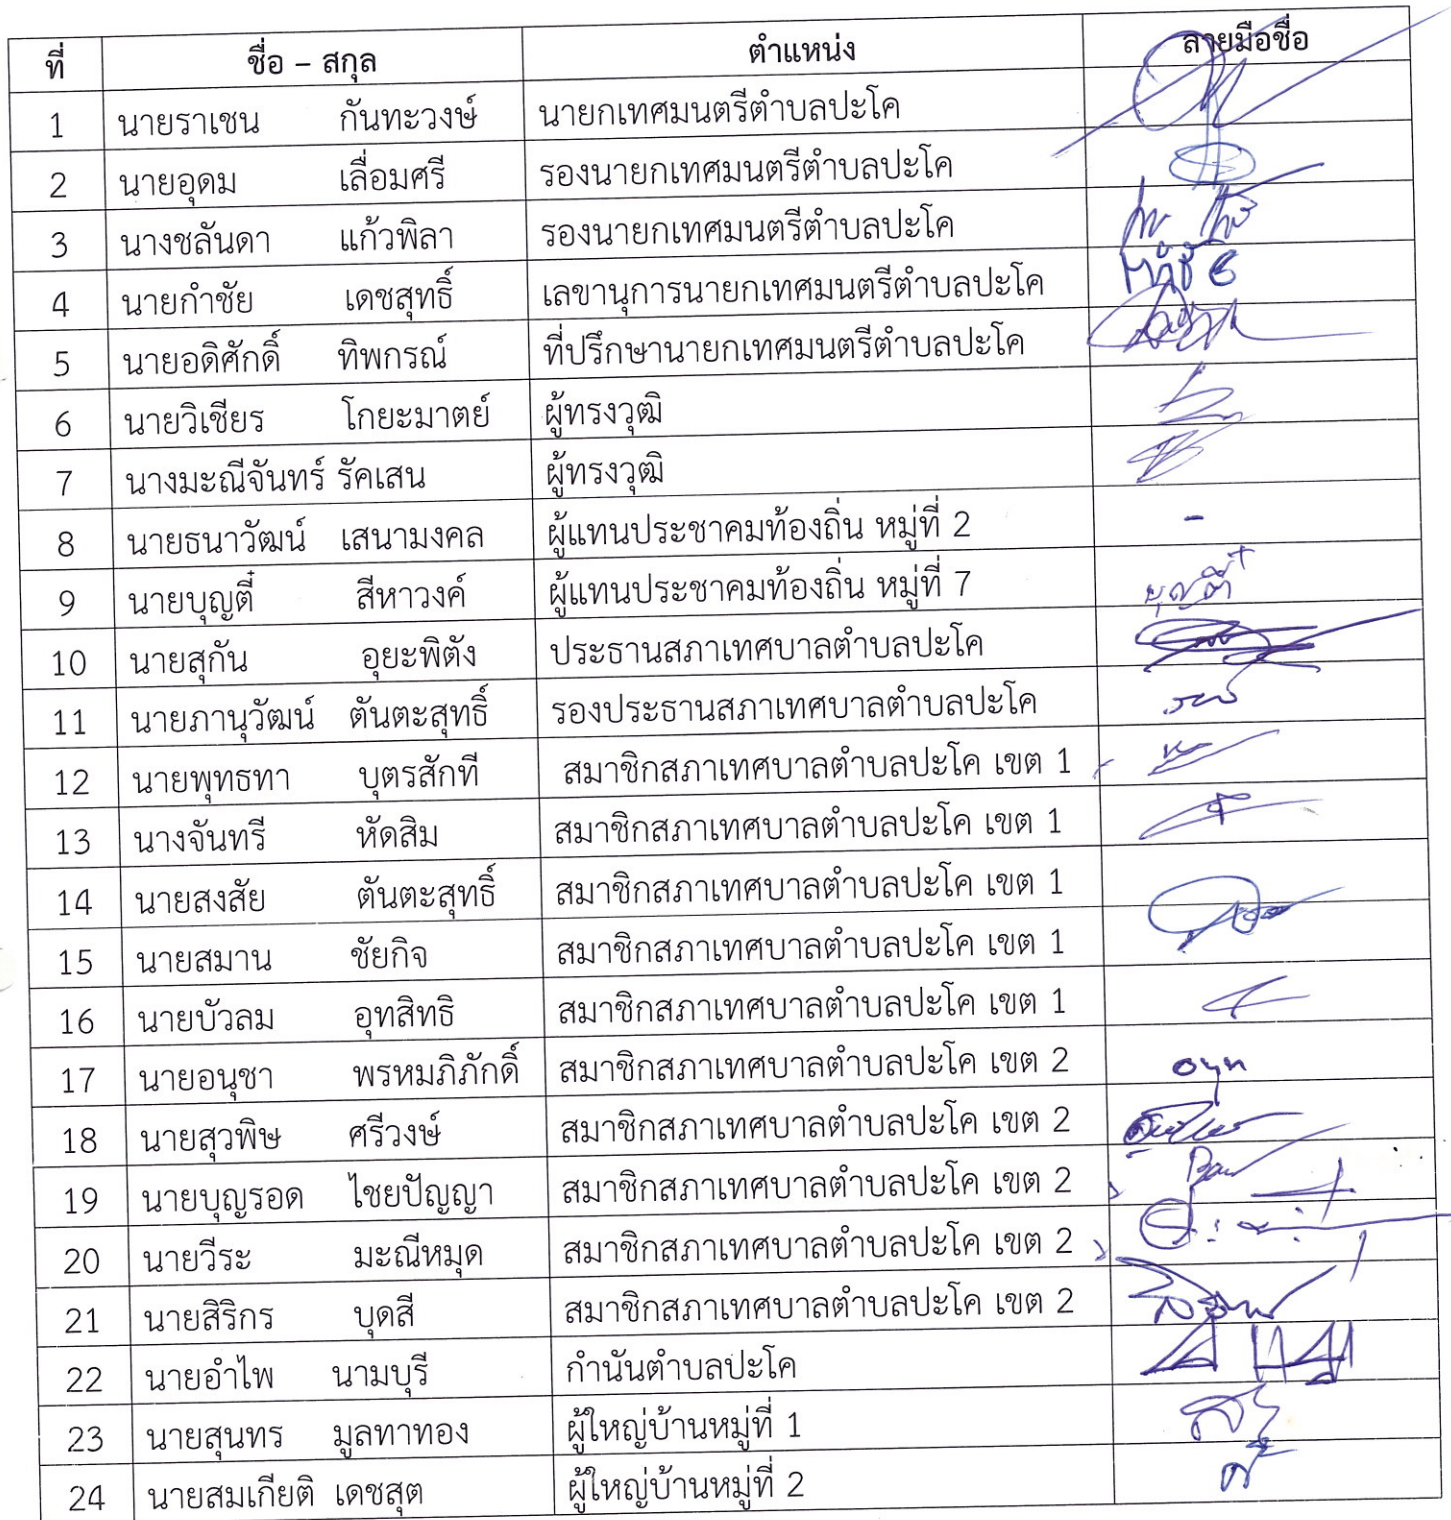 ที่ ชื่อ – สกุล ตำแหน่ง ลายมือชื่อ
1 นายราเชน กันทะวงษ์ นายกเทศมนตรีตำบลปะโค
2 นายอุดม เลื่อมศรี รองนายกเทศมนตรีตำบลปะโค
3 นางชลันดา แก้วพิลา รองนายกเทศมนตรีตำบลปะโค
4 นายกำชัย เดชสุทธิ์ เลขานุการนายกเทศมนตรีตำบลปะโค
5 นายอดิศักดิ์ ทิพกรณ์ ที่ปรึกษานายกเทศมนตรีตำบลปะโค
6 นายวิเชียร โกยะมาตย์ ผู้ทรงวุฒิ
7 นางมะณีจันทร์ รัคเสน ผู้ทรงวุฒิ
8 นายธนาวัฒน์ เสนามงคล ผู้แทนประชาคมท้องถิ่น หมู่ที่ 2 -
9 นายบุญตี๋ สีหาวงค์ ผู้แทนประชาคมท้องถิ่น หมู่ที่ 7 บุญตี๋
10 นายสุกัน อุยะพิตัง ประธานสภาเทศบาลตำบลปะโค
11 นายภานุวัฒน์ ตันตะสุทธิ์ รองประธานสภาเทศบาลตำบลปะโค
12 นายพุทธทา บุตรสักที สมาชิกสภาเทศบาลตำบลปะโค เขต 1
13 นางจันทรี หัดสิม สมาชิกสภาเทศบาลตำบลปะโค เขต 1
14 นายสงสัย ตันตะสุทธิ์ สมาชิกสภาเทศบาลตำบลปะโค เขต 1
15 นายสมาน ชัยกิจ สมาชิกสภาเทศบาลตำบลปะโค เขต 1
16 นายบัวลม อุทสิทธิ สมาชิกสภาเทศบาลตำบลปะโค เขต 1
17 นายอนุชา พรหมภิภักดิ์ สมาชิกสภาเทศบาลตำบลปะโค เขต 2
18 นายสุวพิษ ศรีวงษ์ สมาชิกสภาเทศบาลตำบลปะโค เขต 2
19 นายบุญรอด ไชยปัญญา สมาชิกสภาเทศบาลตำบลปะโค เขต 2
20 นายวีระ มะณีหมุด สมาชิกสภาเทศบาลตำบลปะโค เขต 2
21 นายสิริกร บุดสี สมาชิกสภาเทศบาลตำบลปะโค เขต 2
22 นายอำไพ นามบุรี กำนันตำบลปะโค
23 นายสุนทร มูลทาทอง ผู้ใหญ่บ้านหมู่ที่ 1
24 นายสมเกียติ เดชสุต ผู้ใหญ่บ้านหมู่ที่ 2